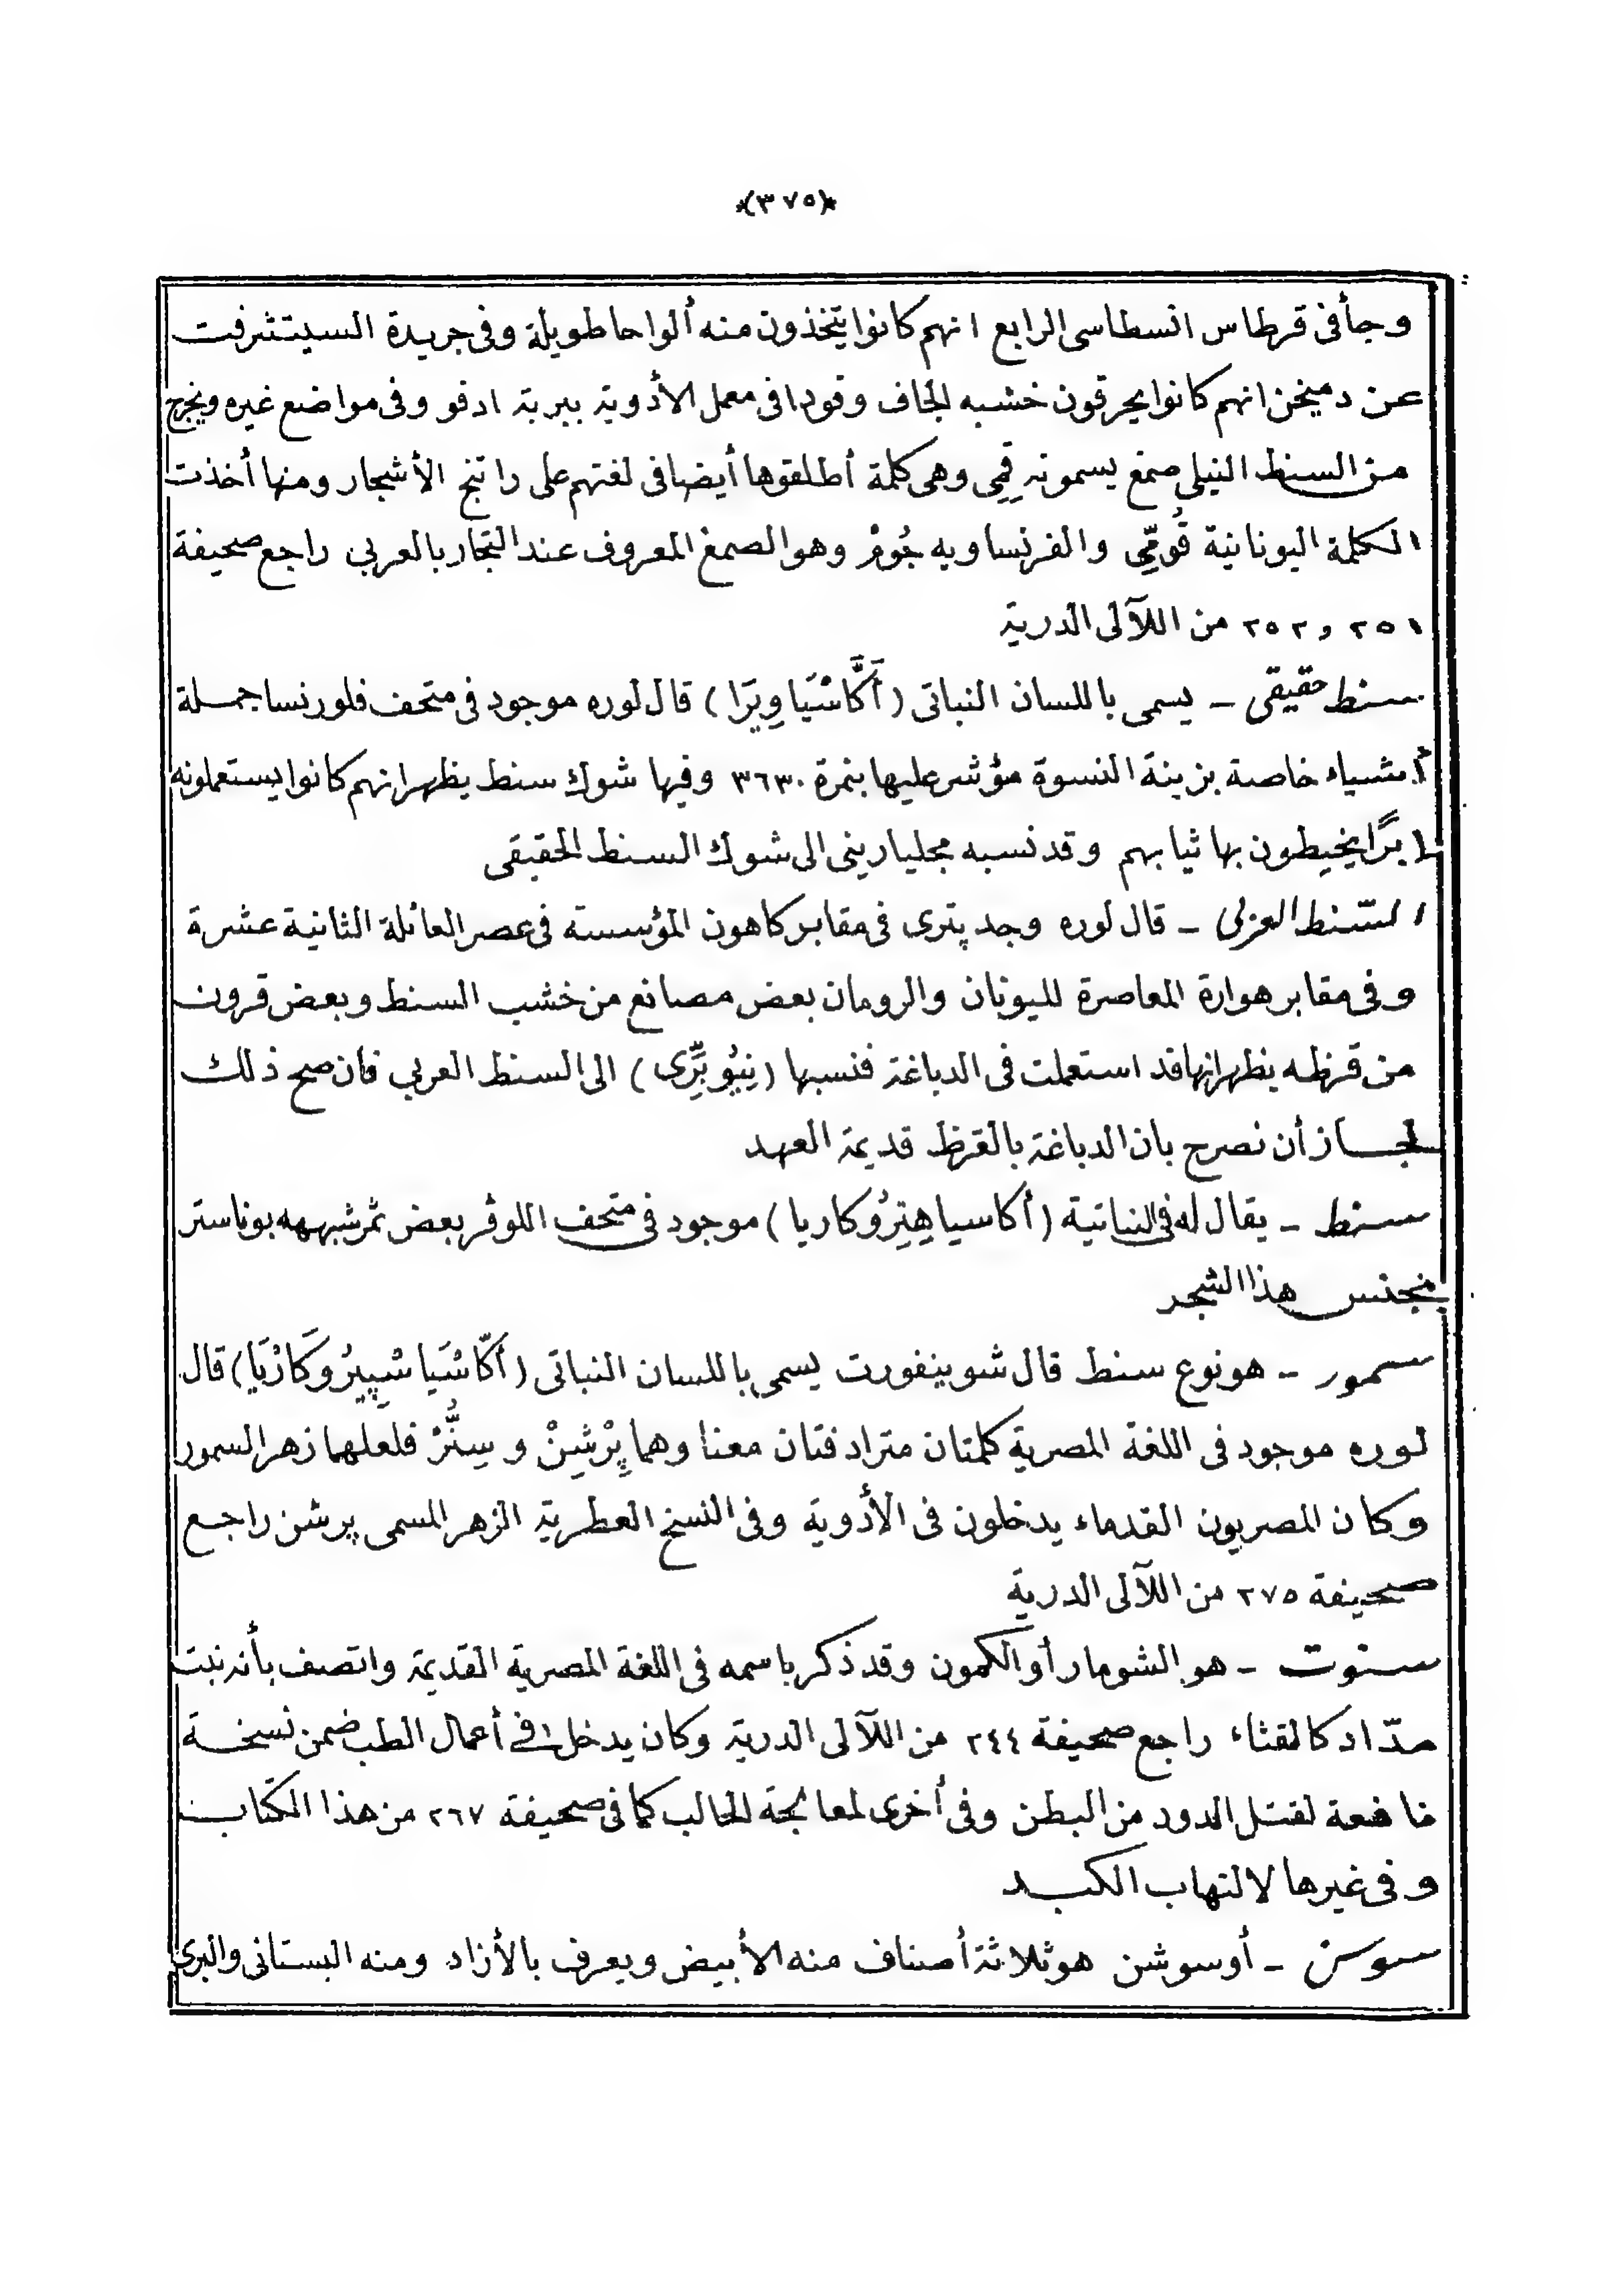 *(٣٧٥)*
وجأفى قرطاس انسطاسى الرابع انهم كانوا يتخذون منه ألواحا طويلة وفى جريدة السيتشرفت
عن دميخن انهم كانوا يحرقون خشبه الجاف وقودا فى معمل الأدوية ببربة ادفو وفى مواضع غيره ويخرج
من السنط النيلى صمغ يسمونه قِمِى وهى كلمة أطلقوها أيضا فى لغتهم على راتنج الأشجار ومنها أخذت
الكلمة اليونانية قُومِّى والفرنساويه جُومْ وهو الصمغ المعروف عند التجار بالعربي راجع صحيفة
٢٥١ و٢٥٢ من اللآلى الدرية
سنط حقيقى - يسمى باللسان النباتى (أَكَّاسْيَا وِيرَا) قال لوره موجود فى متحف فلورنسا جملة
أشياء خاصة بزينة النسوة مؤشر عليها بنمرة ٣٦٣٠ وفيها شوك سنط يظهر انهم كانوا يستعملونه
ابرًا يخيطون بها ثيابهم وقد نسبه مجليارينى الى شوك السنط الحقيقى
السّنط العربى - قال لوره وجد پترى فى مقابر كاهون المؤسسة فى عصر العائلة الثانية عشرة
وفى مقابر هوارة المعاصرة لليونان والرومان بعض مصانع من خشب السنط وبعض قرون
من قرظه يظهر انها قد استعملت فى الدباغة فنسبها (نِيُوبِرِّى) الى السنط العربي فان صح ذلك
لجاز أن نصرح بان الدباغة بالقرظ قديمة العهد
سنط - يقال له فى النباتية (أكاسيا هِتِرُوكاريا) موجود فى متحف اللوڤر بعض ثمر شبهه بوناستر
بجنس هذا الشجر
سمور - هو نوع سنط قال شوينفورت يسمى باللسان النباتى (أكّاسْيَا سْپِيرُوكَارْيَا) قال
لوره موجود فى اللغة المصرية كلمتان مترادفتان معنا وهما پِرْشِنْ و سِنُّرْ فلعلهما زهر السمور
وكان المصريون القدماء يدخلون فى الأدوية وفى النسخ العطرية الزهر المسمى پرشن راجع
صحيفة ٢٧٥ من اللآلى الدرية
سنوت - هو الشومار أو الكمون وقد ذكر باسمه فى اللغة المصرية القديمة واتصف بأنه نبت
مدّاد كالقثاء راجع صحيفة ٢٤٤ من اللآلى الدرية وكان يدخل فى أعمال الطب ضمن نسخة
نافعة لقتل الدود من البطن وفى أخرى لمعالجة الحالب كما فى صحيفة ٢٦٧ من هذا الكتاب
وفى غيرها لالتهاب الكبد
سوسن - أو سوشن هو ثلاثة أصناف منه الأبيض ويعرف بالأزاد ومنه البستانى والبرى